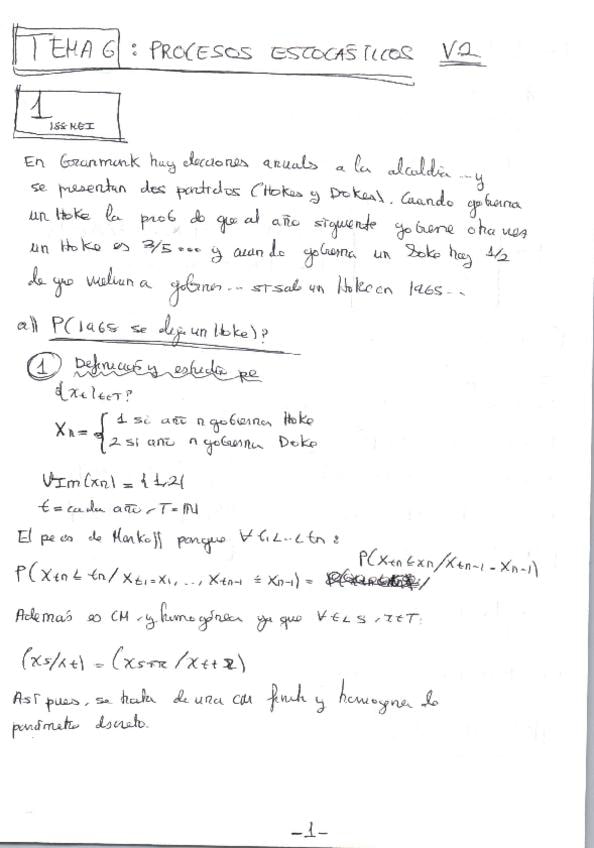 TEMA 6 : PROCESOS ESTOCÁSTICOS V.2
1
En Granmunk hay elecciones anuales a la alcaldía ... y
se presentan dos partidos (Hokes y Dokes). Cuando gobierna
un Hoke la prob de que al año siguiente gobierne otra vez
un Hoke es 3/5 ... y cuando gobierna un Doke hay 1/2
de que vuelvan a gobernar... si sale un Hoke en 1965...
a)) P(1965 se elija un Hoke)?
1 Definición y estudio pe
{xt}t∈T?
Xn = { 1 si año n gobierna Hoke
2 si año n gobierna Doke
∪Im(xn) = {1,2}
t = cada año, T = ℕ
El pe es de Markoff porque ∀ t1<..<tn :
P(Xtn ≤ tn / Xt1=x1, ..., Xtn-1 = Xn-1) = P(Xtn ≤ xn / Xtn-1 = Xn-1)
Además es CM y homogénea ya que ∀ t<s, r∈T:
(Xs/Xt) = (Xs+r / Xt+r)
Así pues, se trata de una CM finita y homogenea de
parámetro discreto.
-1-